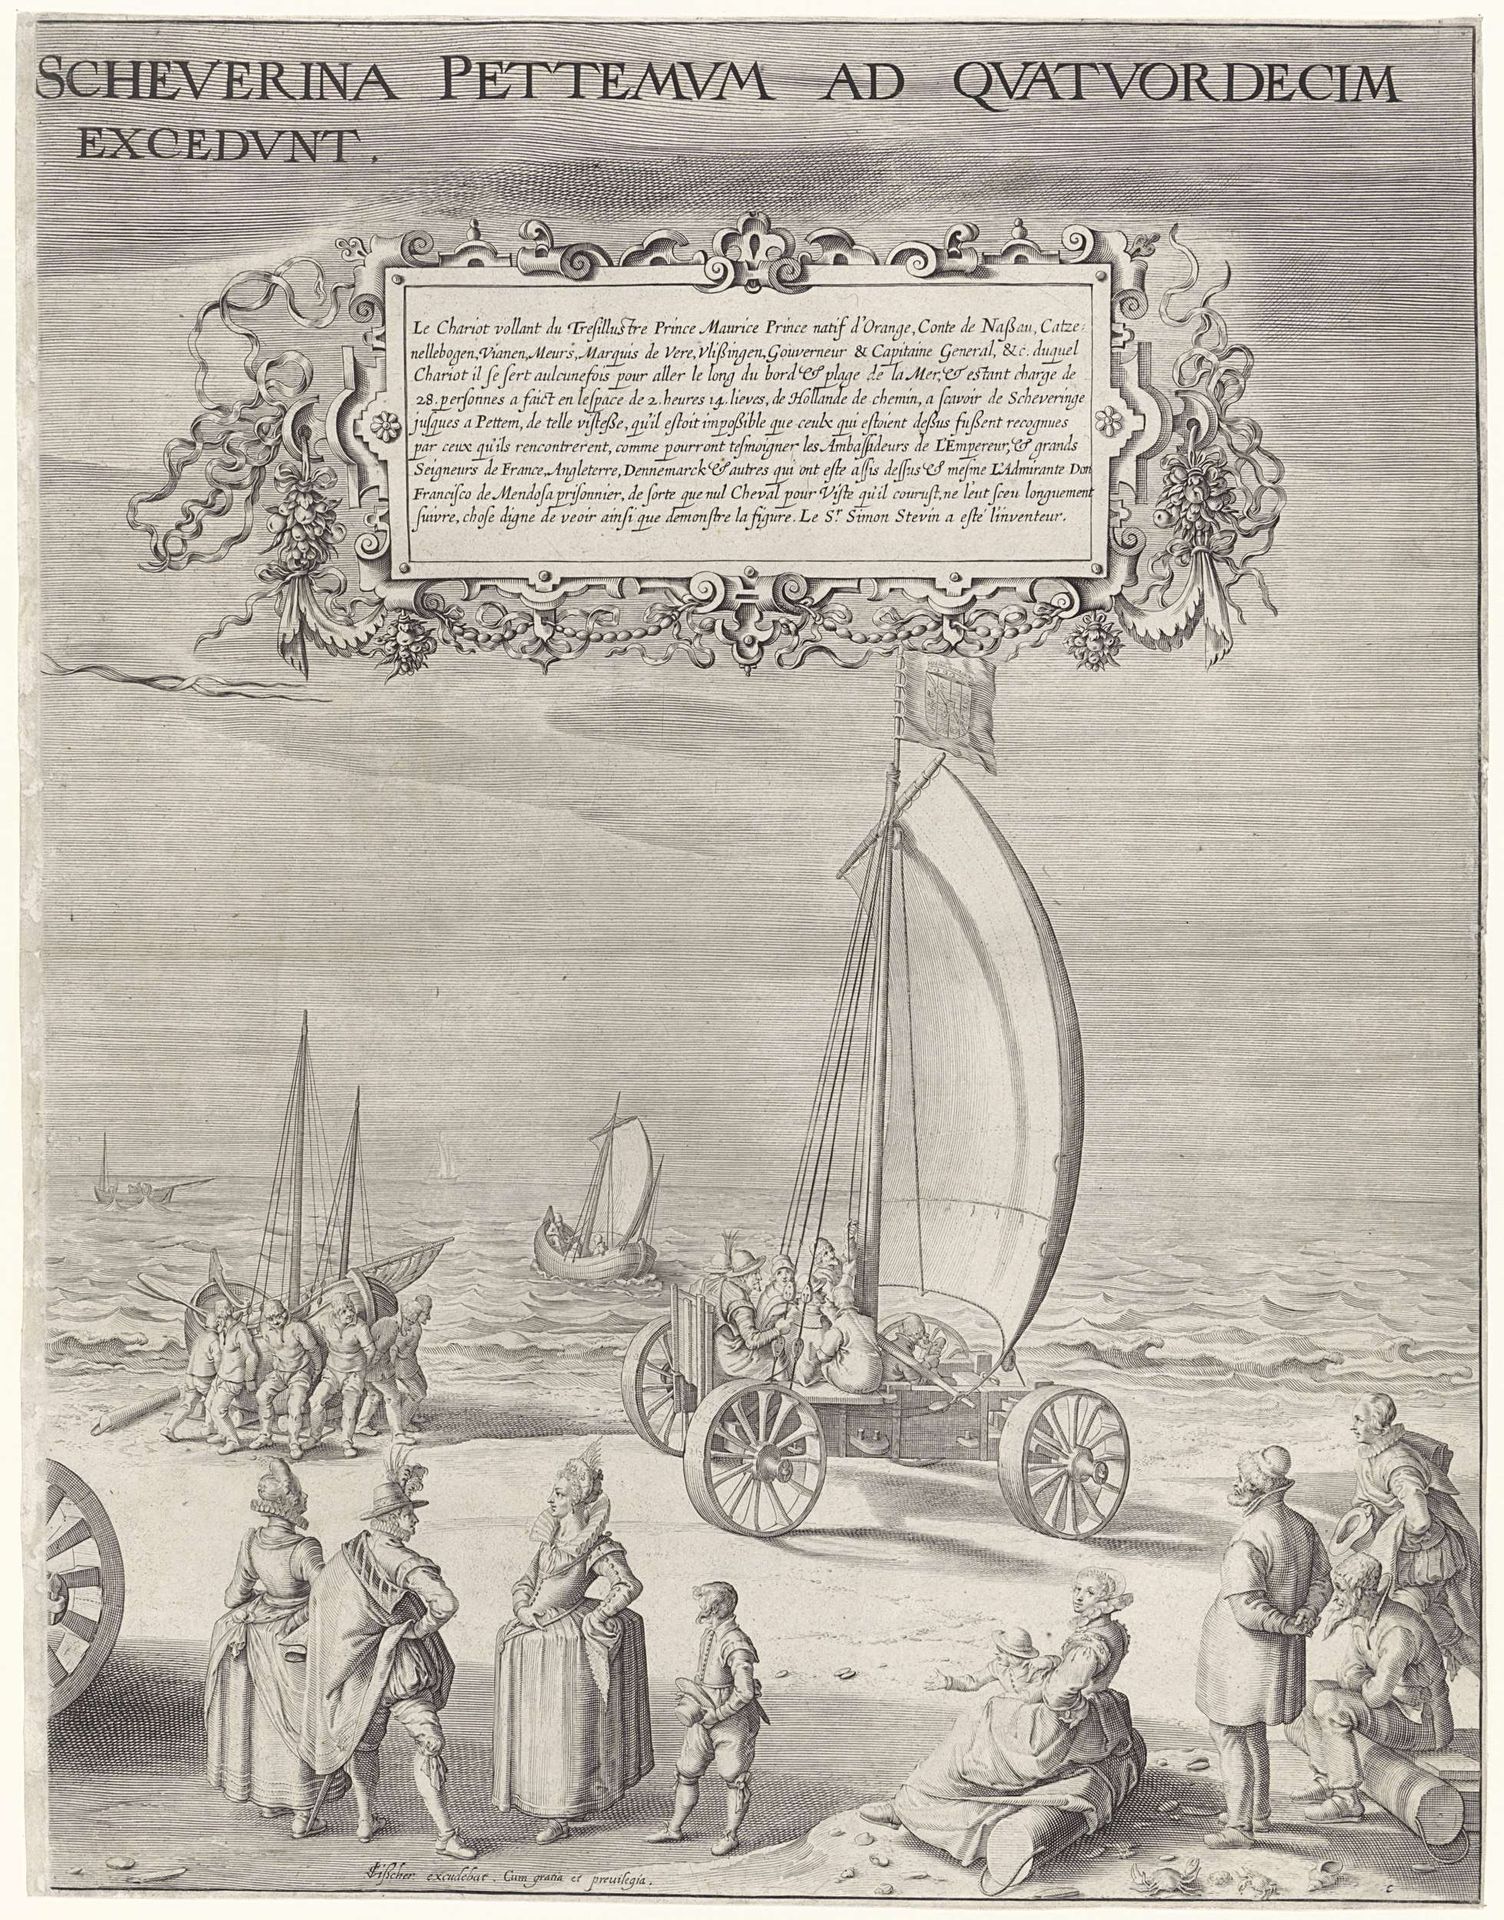 SCHEVERINA PETTEMVM AD QVATVORDECIM
EXCEDVNT.
Le Chariot vollant du Tresillustre Prince Maurice Prince natif d'Orange, Conte de Naßau, Catze:
nellebogen, Vianen, Meurs, Marquis de Vere, Vlißingen, Gouverneur & Capitaine General, &c. duquel
Chariot il se sert aulcunefois pour aller le long du bord & plage de la Mer, & estant charge de
28. personnes a faict en lespace de 2. heures 14. lieves, de Hollande de chemin, a scavoir de Scheveringe
jusques a Pettem, de telle visteße, qu'il estoit impoßible que ceulx qui estoient deßus fußent recognues
par ceux qu'ils rencontrerent, comme pourront tesmoigner les Ambaßadeurs de L'Empereur, & grands
Seigneurs de France, Angleterre, Dennemarck & autres qui ont este aßis deßus & mesme L'Admirante Don
Francisco de Mendosa prisonnier, de sorte que nul Cheval pour Viste qu'il courust, ne leut sceu longuement
suivre, chose digne de veoir ainsi que demonstre la figure. Le Sr. Simon Stevin a esté linventeur.
Visscher excudebat. Cum gratia et previlegia.
C